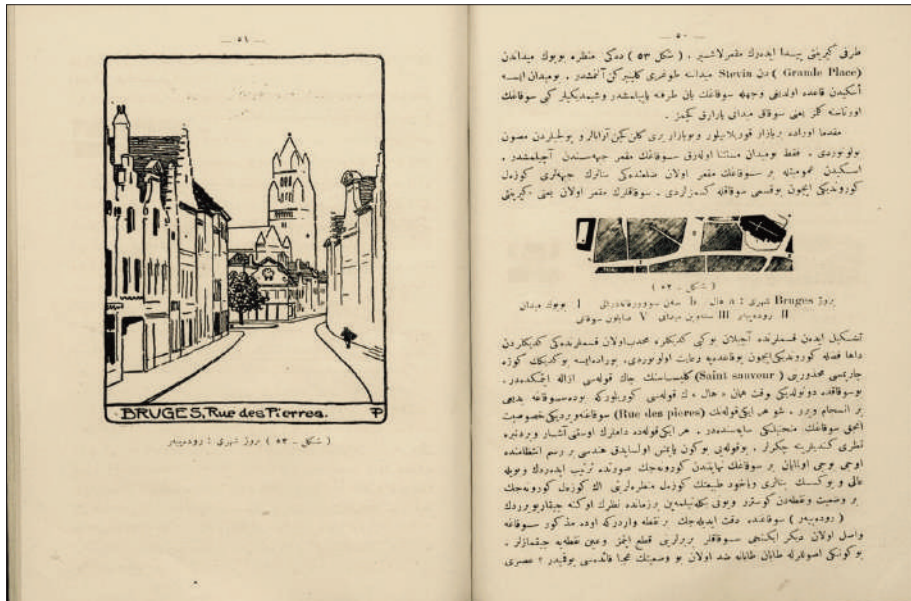 — ٥٠ —
طرفی کیریتی پیدا ایده‌رك مقعرلاشیر . ( شکل ٥٣ ) ده‌کی منظره بویوك میداندن
(Grande Place) دن Stevin میداننه طوغری کلینیرکن آلنمشدر . بومیدان ایسه
أسکیدن قاعده اولدیغی وجهله سوقاغك یان طرفنه یاپیلمشدر وشیمدیکیلر کبی سوقاغك
اورتاسنه کلز یعنی سوقاق میدانی یارارق کچمز .
مقدما اوراده بازار قوریلایلور وبوبازار بری کلن کچن آرابالر و یولجیلردن مصون
بولونوردی . فقط بومیدان مستثنا اوله‌رق سوقاغك مقعر جهه‌سندن آچیلمشدر .
اسکیدن عمومیتله بر سوقاغك مقعر اولان ضلعنده‌کی بنالرك جبهه‌لری کوزل
کوروندیکی ایچون بوقسمی سوقاقله کسمزلردی . سوقاقلرك مقعر اولان یعنی کیریتی
( شکل - ٥٢ )
بروژ Bruges شهری : a هال b سه‌ن سووور قاته‌درالی I بویوك میدان
II روده‌پیه‌ر III سته‌وین میدانی V صابلون سوقاغی
تشکیل ایدەن قسملرنده آچیلان بوکی کدیکلره محدب اولان قسملرنده‌کی کدیکلردن
داها فضله کوروندیکی ایچون بوقاعده‌یه رعایت اولونوردی. بوراده‌ایسه بوکدیکك کوزه
چارپمسی محذورینی (Saint sauveur) کلیساسنك چاك قوله‌سی ازاله ایتمکده‌در.
بوسوقاقده دونولدیکی وقت همان « هال » ك قوله‌سی کورولورکه بوده‌سوقاغه بدیعی
بر انسجام ویرر . شو هر ایکی قوله‌نك (Rue des pieres) سوقاغنه‌ویردیکی خصوصیت
آنجق سوقاغك منحنیلکی سایه‌سنده‌در . هر ایکی قوله‌ده داملرك اوستنی آشار وبردنبره
نظری کندیلرینه چکرلر . بوقوله‌لی بوکون یاپمش اولسایدق هندسی بر رسم انتظامنده
اوجی بوجی اوزایان بر سوقاغك نهایتندن کورونه‌جك صورتده ترتیب ایده‌ردك وبویله
عالی و یوکسك بنالری ویاخود طبیعتك کوزل منظره‌لرینی اك کوزل کورونه‌جك
بر وضعیت ونقطه‌دن کوسترر وبونی بکله‌نیلمه‌ین برزمانده نظرك اوکنه چیقاریویرردك
( روده‌پیه‌ر ) سوقاغنده دقت ایدیله‌جك بر نقطه واردرکه اوده مذکور سوقاغه
واصل اولان دیکر ایکنجی سوقاقلر بربرلرینی قطع ایتمز وعین نقطه‌یه چیقمازلر .
بوکونکی اصوللرله طابان طابانه ضد اولان بو وضعیتك عجبا فائده‌سی یوقمیدر ؟ عصری
— ٥١ —
BRUGES, Rue des Pierres.
( شکل - ٥٣ ) بروژ شهری : روده‌پیه‌ر